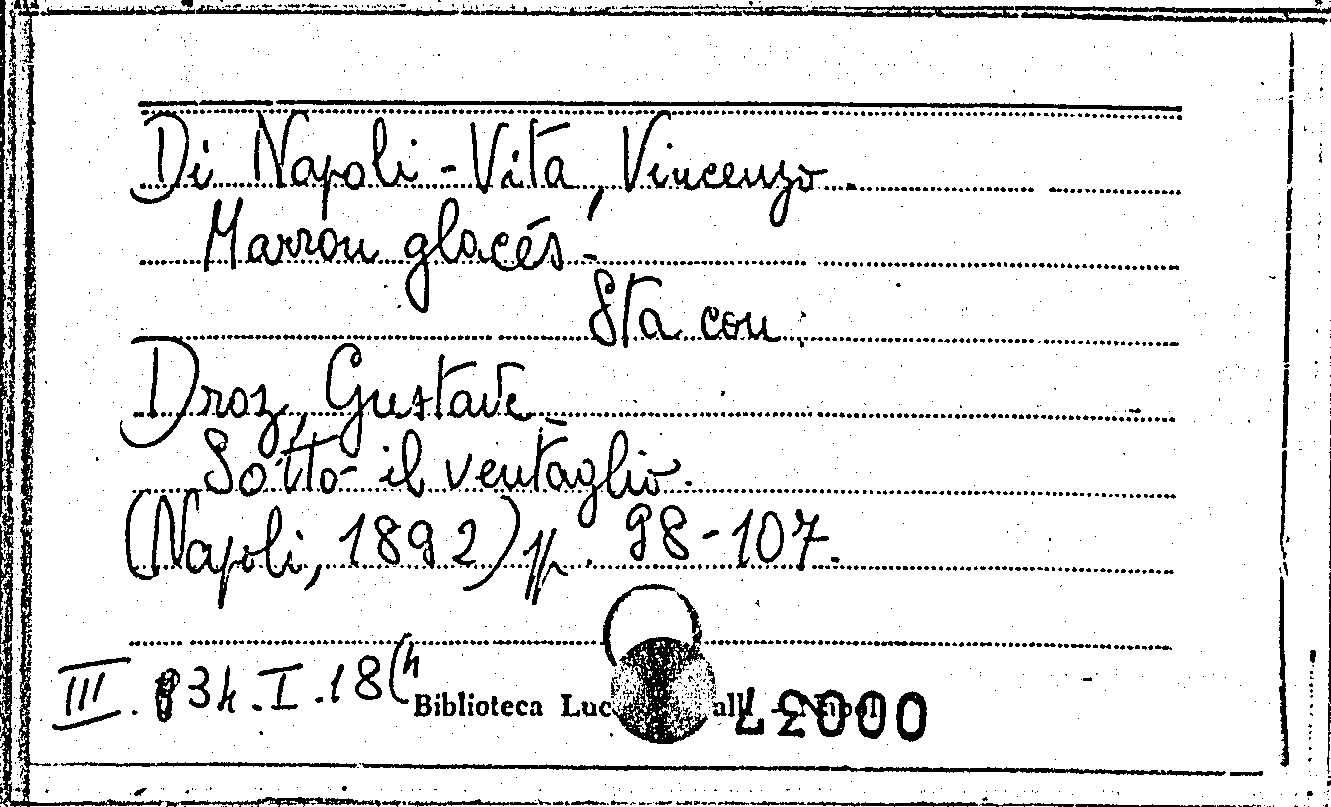 Di Napoli-Vita, Vincenzo.
Marron glacés.
Sta con:
Droz, Gustave.
Sotto il ventaglio.
(Napoli, 1892) pp. 98-107.
III. 834.I.18(4
Biblioteca